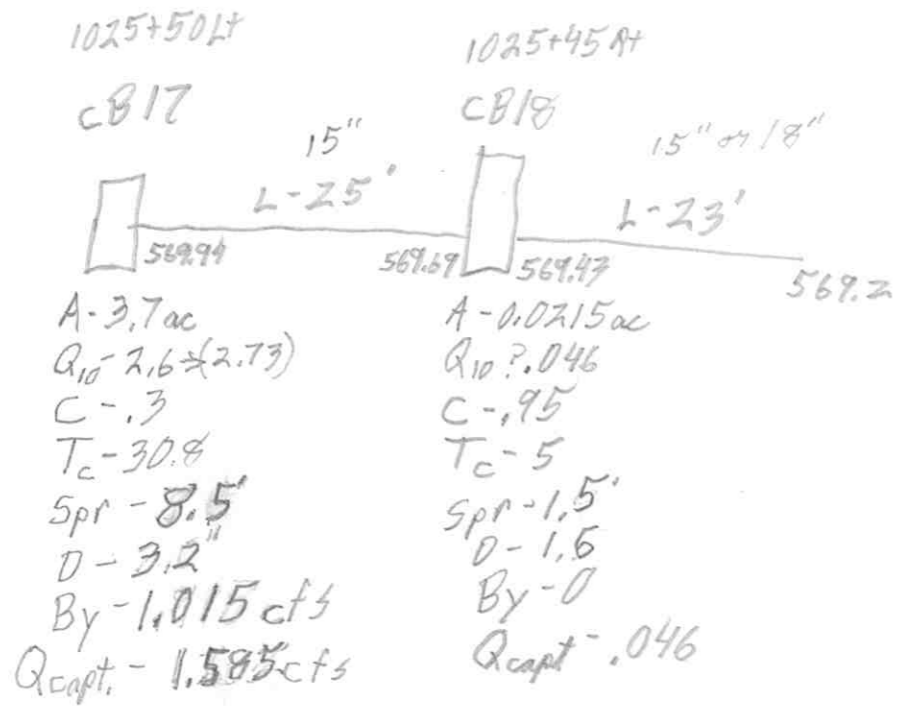 1025+50Lt
CB17
15"
L-25'
569.94
569.69
A-3.7ac
Q10-2.6 (2.73)
C-.3
Tc-30.8
Spr-8.5'
D-3.2"
By-1.015cfs
Qcapt.-1.585cfs
1025+45Rt
CB18
15" or 18"
L-23'
569.43
569.2
A-0.0215ac
Q10?.046
C-.95
Tc-5
Spr-1.5'
D-1.6
By-0
Qcapt-.046